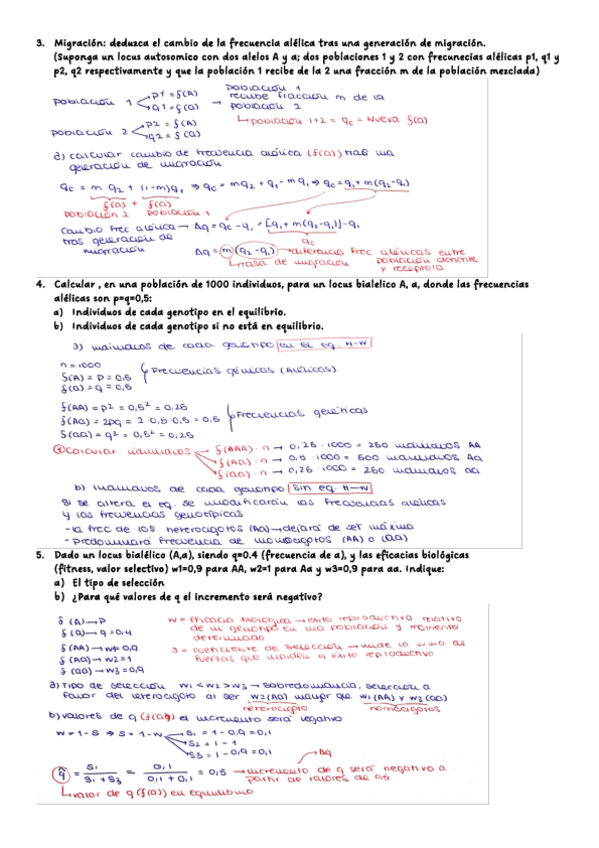 3. Migración: deduzca el cambio de la frecuencia alélica tras una generación de migración.
(Suponga un locus autosomico con dos alelos A y a; dos poblaciones 1 y 2 con frecunecias alélicas p1, q1 y
p2, q2 respectivamente y que la población 1 recibe de la 2 una fracción m de la población mezclada)
Población 1 p1 = f(A) → Población 1
q1 = f(a) recibe fracción m de la
población 2
Población 2 p2 = f(A) ↳ población 1+2 = qc = Nueva f(a)
q2 = f(a)
a) calcular cambio de frecuencia alélica (f(a)) tras una
generación de migración
qc = m q2 + (1-m)q1 ⇒ qc = mq2 + q1 - mq1 ⇒ qc = q1 + m(q2-q1)
f(a) + f(a)
Población 2 Población 1
cambio frec alélica → Δq = qc - q1 = [q1 + m(q2-q1)] - q1
tras generación de qc
migración Δq = m(q2-q1) → diferencia frec alélicas entre
↳ tasa de migración población donante
y receptora
4. Calcular , en una población de 1000 individuos, para un locus bialelico A, a, donde las frecuencias
alélicas son p=q=0,5:
a) Individuos de cada genotipo en el equilibrio.
b) Individuos de cada genotipo si no está en equilibrio.
a) individuos de cada genotipo en el eq. H-W
n = 1000
f(A) = p = 0,5 Frecuencias génicas (Alélicas)
f(a) = q = 0,5
f(AA) = p² = 0,5² = 0.25
f(Aa) = 2pq = 2·0,5·0,5 = 0,5 Frecuencias
f(aa) = q² = 0,5² = 0,25
calcular individuos → f(AA)·n → 0,25·1000 = 250 individuos AA
f(Aa)·n → 0.5·1000 = 500 individuos Aa
f(aa)·n → 0,25·1000 = 250 individuos aa
b) individuos de cada genotipo sin eq. H-W
si se altera el eq. se modificarán las frecuencias alélicas
y las frecuencias genotípicas
- la frec de los heterocigotos (Aa) → dejará de ser máxima
- Predominará frecuencia de homocigotos (AA) o (aa)
5. Dado un locus bialélico (A,a), siendo q=0.4 (frecuencia de a), y las eficacias biológicas
(fitness, valor selectivo) w1=0,9 para AA, w2=1 para Aa y w3=0,9 para aa. Indique:
a) El tipo de selección
b) ¿Para qué valores de q el incremento será negativo?
f(A) → p w = Eficacia biológica → éxito reproductivo relativo
f(a) → q = 0,4 de un genotipo en una población y momento
determinado
f(AA) → w1 = 0,9 s = coeficiente de selección → mide la suma de
f(Aa) → w2 = 1 fuerzas que impiden el éxito reproductivo
f(aa) → w3 = 0,9
a) Tipo de selección w1 < w2 > w3 → sobredominancia, selección a
favor del heterocigoto al ser w2(Aa) mayor que w1(AA) y w3(aa)
heterocigoto homocigotos
b) valores de q (f(a)) el incremento será negativo
w = 1-s ⇒ s = 1-w → s1 = 1 - 0,9 = 0,1
s2 = 1 - 1
s3 = 1 - 0,9 = 0,1 Δq
q̂ = s1 / s1 + s3 = 0,1 / 0,1 + 0,1 = 0,5 → incremento de q será negativo a
partir de valores de 0,5
↳ valor de q (f(a)) en equilibrio